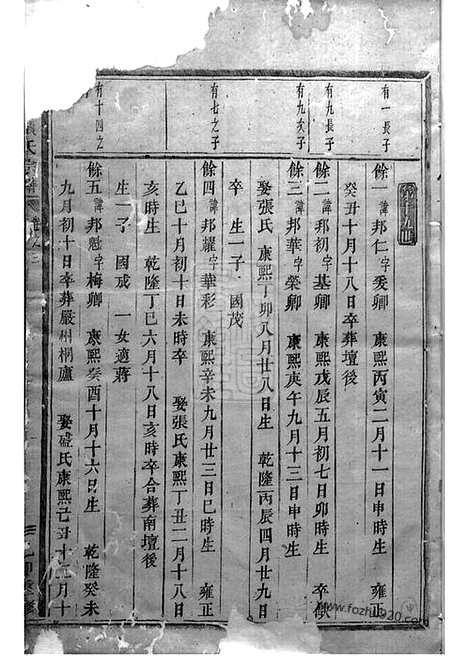 有一長子
有九長子
有九次子
有七之子
有十四之
餘一諱邦仁字爰卿 康熙丙寅二月十一日申時生 雍正
癸丑十月十八日卒葬壇後
餘二諱邦初字基卿 康熙戊辰五月初七日卯時生 卒歿
餘三諱邦華字榮卿 康熙庚午九月十三日申時生
娶張氏 康熙丁卯八月廿八日生 乾隆丙辰四月廿九日
卒 生一子 國茂
餘四諱邦耀字華彩 康熙辛未九月廿三日巳時生 雍正
乙巳十月初十日未時卒 娶張氏康熙丁丑二月十八日
亥時生 乾隆丁巳六月十八日亥時卒合葬南壇後
生一子 國成 一女適蔣
餘五諱邦魁字梅卿 康熙癸酉十月十六日生 乾隆癸未
九月初十日卒葬嚴州桐廬 娶盛氏康熙己丑十二月十
www.fozhu920.com